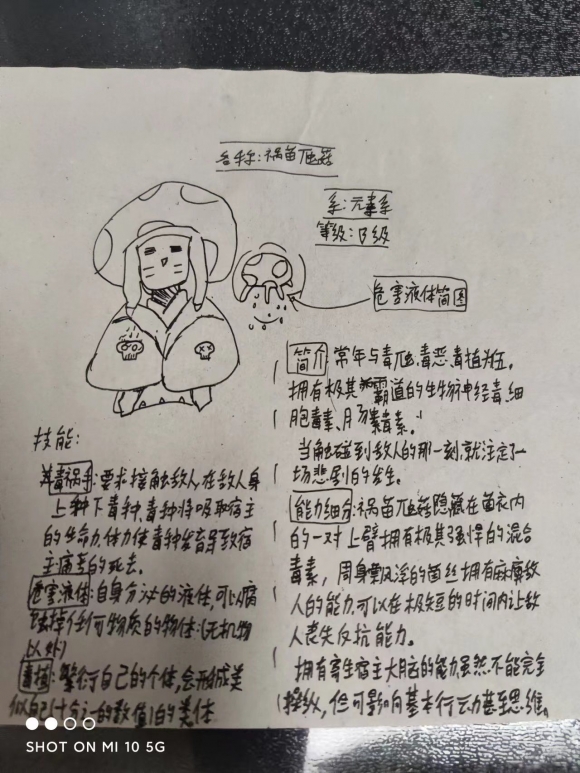 名称:祸苗虺菇
系:元素系
等级:B级
危害液体简图
简介:常年与毒虺、毒恶毒植为伍。
拥有极其霸道的生物神经毒、细
胞毒素、肠毒素。
当触碰到敌人的那一刻,就注定了一
场悲剧的发生。
能力细分:祸苗虺菇隐藏在菌衣内
的一对上臂拥有极其强悍的混合
毒素,周身飘浮的菌丝拥有麻痹敌
人的能力,可以在极短的时间内让敌
人丧失反抗能力。
拥有寄生宿主大脑的能力,虽然不能完全
操纵,但可影响基本行动甚至思维。
技能:
毒祸手:要求接触敌人,在敌人身
上种下毒种,毒种将吸取宿主
的生命力,体力使毒种发育导致宿
主痛苦的死去。
危害液体:自身分泌的液体,可以腐
蚀掉任何物质的物体(无机物
以外)
毒植:繁衍自己的个体,会形成类
似自己(十分之一的数值)的类体
SHOT ON MI 10 5G